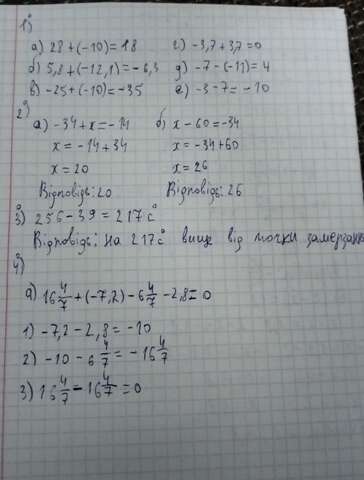 1)
а) 28 + (-10) = 18 г) -3,7 + 3,7 = 0
б) 5,8 + (-12,1) = -6,3 д) -7 - (-11) = 4
в) -25 + (-10) = -35 е) -3 - 7 = -10
2)
а) -34 + х = -14 б) х - 60 = -34
х = -14 + 34 х = -34 + 60
х = 20 х = 26
Відповідь: 20 Відповідь: 26
3) 256 - 39 = 217 с°
Відповідь: на 217 с° вище від точки замерзан
4)
а) 16 4/7 + (-7,2) - 6 4/7 - 2,8 = 0
1) -7,2 - 2,8 = -10
2) -10 - 6 4/7 = -16 4/7
3) 16 4/7 - 16 4/7 = 0